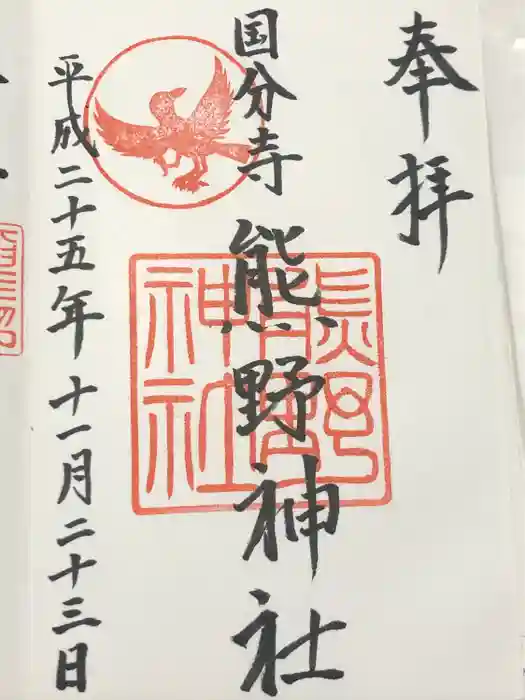 奉拝
国分寺 熊野神社
平成二十五年 十一月二十三日
熊野神社